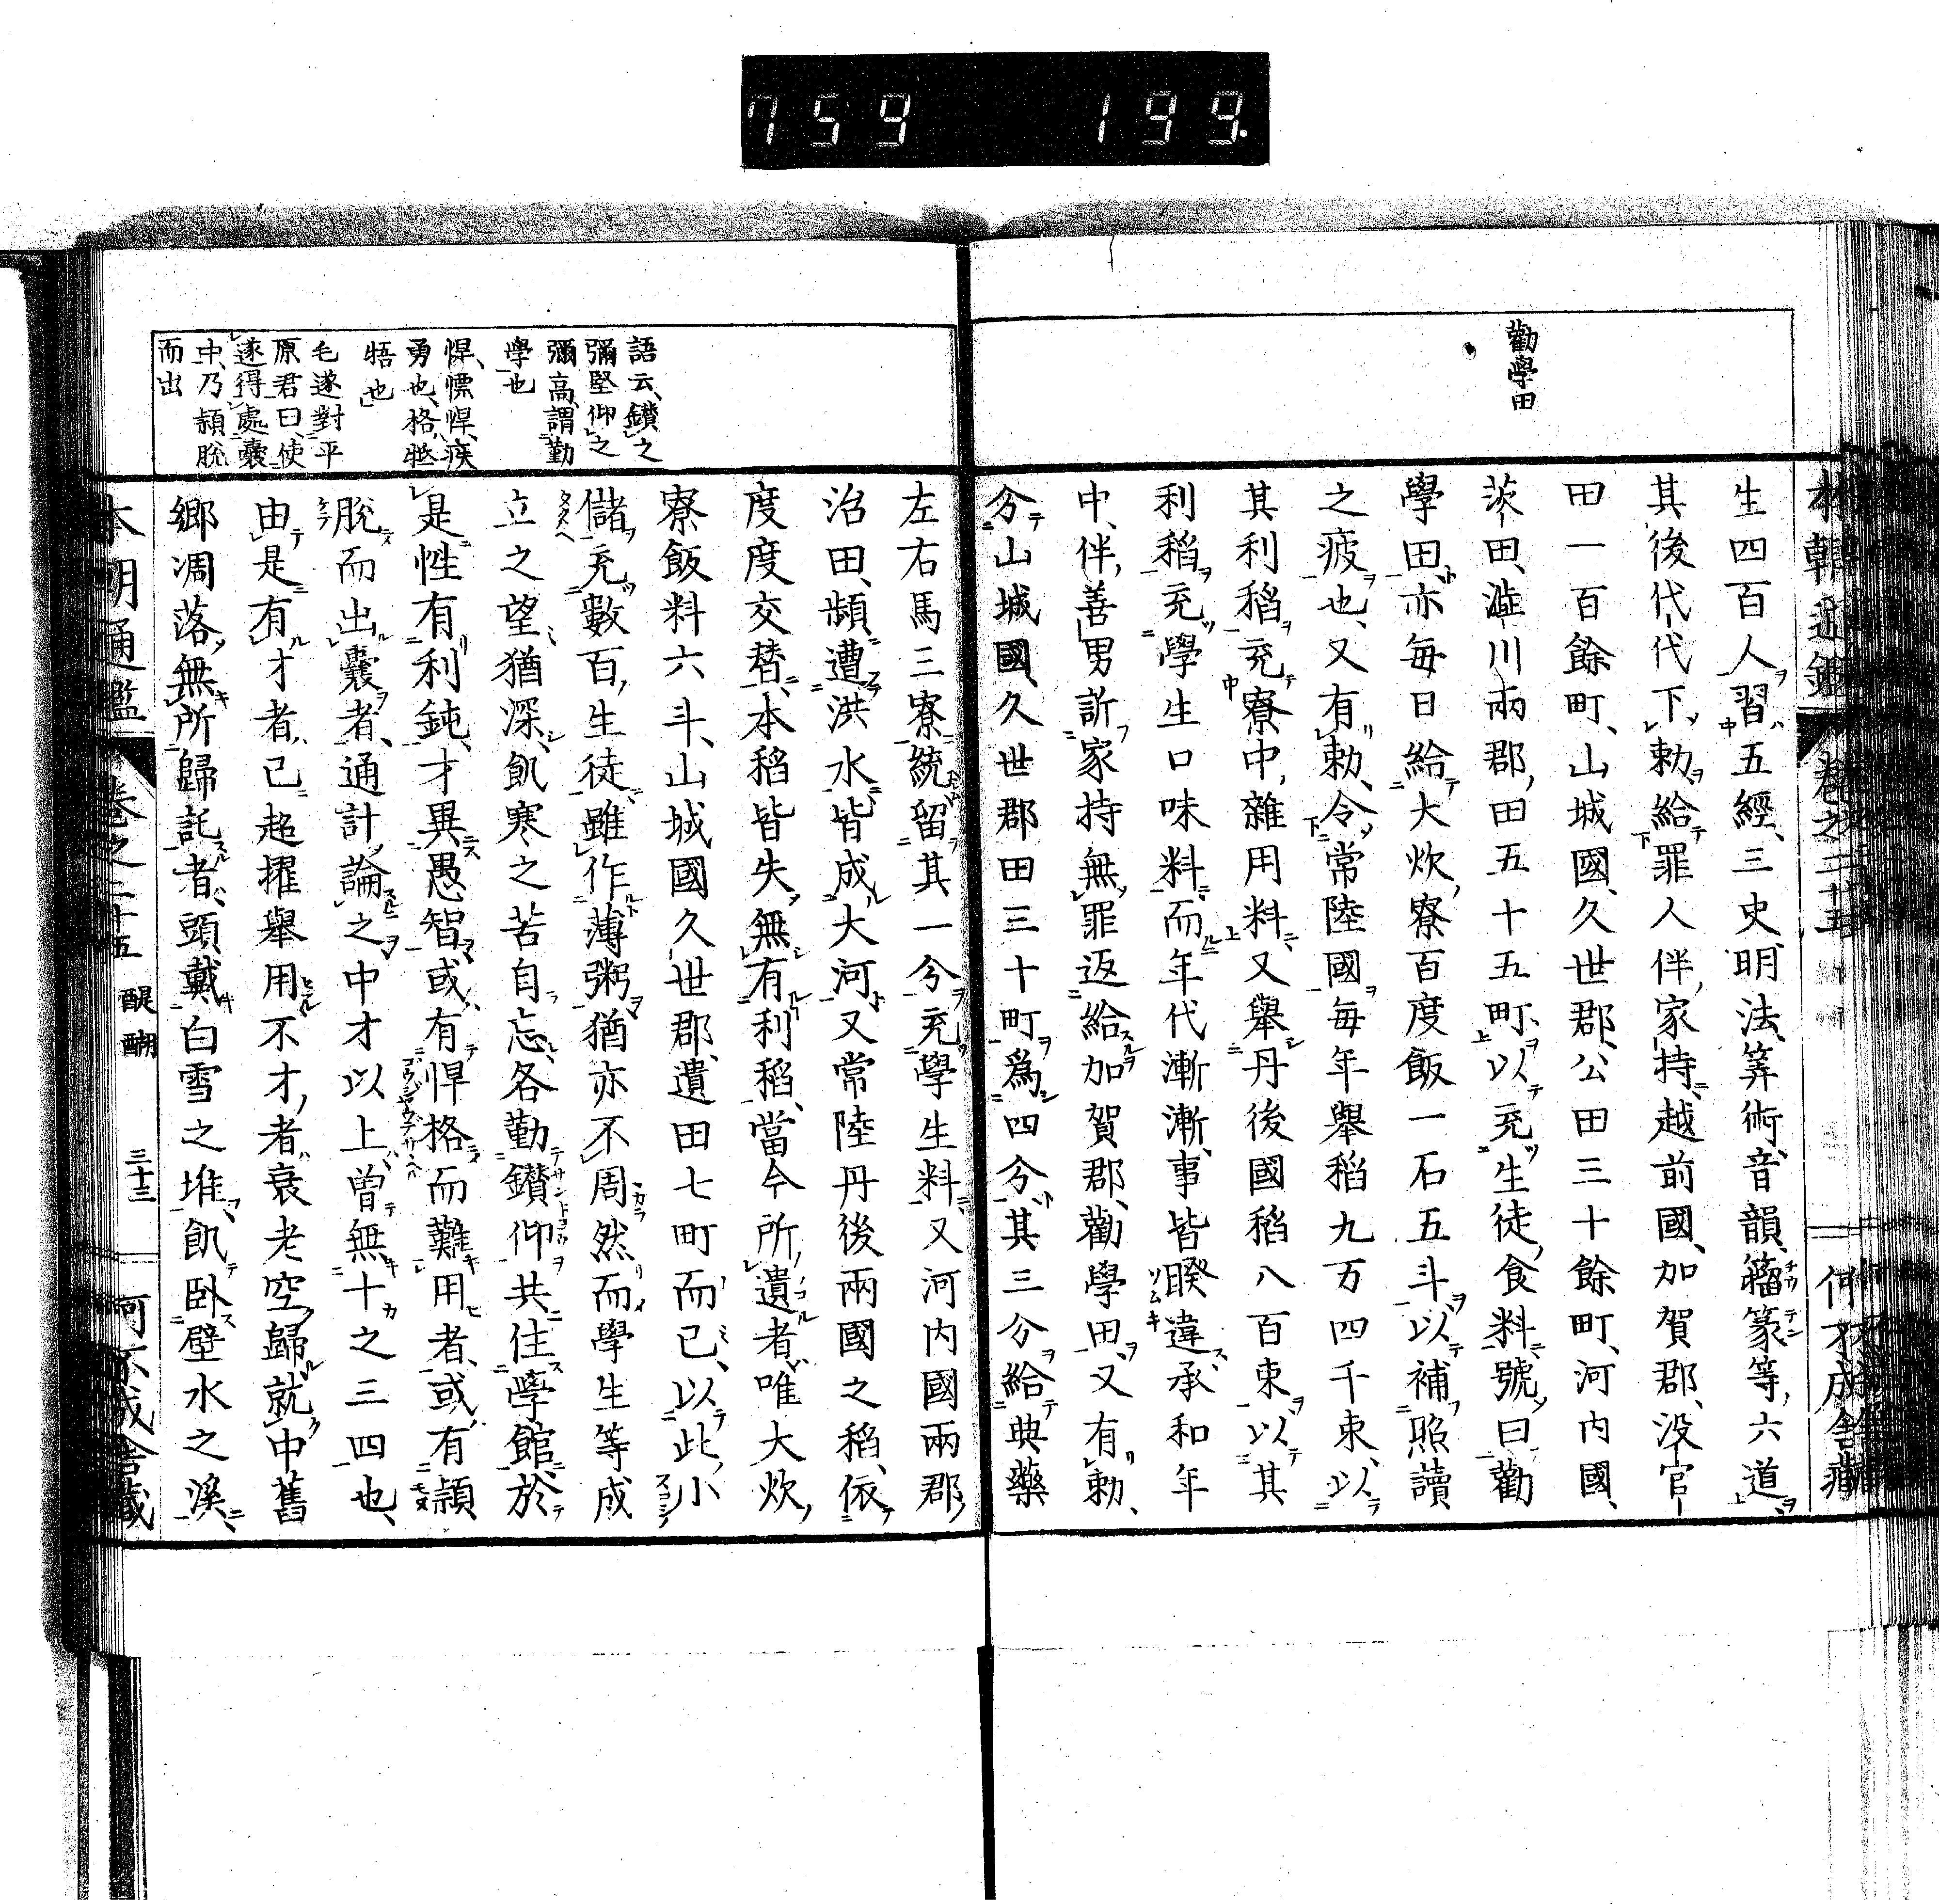 759 199.
勸學田
生四百人習五經、三史、明法、筭術、音韻、籀篆等六道、
其後代代下勅、給罪人伴家持越前國、加賀郡、没官
田一百餘町、山城國、久世郡、公田三十餘町、河内國、
茨田、澁川兩郡、田五十五町、以充生徒食料、號曰勸
學田、亦每日給大炊寮百度飯一石五斗、以補照讀
之疲也、又有勅、令常陸國每年舉稻九万四千束、以
其利稻充寮中雜用料、又舉丹後國稻八百束、以其
利稻充學生口味料、而年代漸漸、事皆暌違、承和年
中、伴善男訢家持無罪返給加賀郡、勸學田、又有勅、
分山城國、久世郡田三十町、爲四分、其三分給典藥
左右馬三寮、統留其一分充學生料、又河内國兩郡
治田、頻遭洪水、皆成大河、又常陸丹後兩國之稻、依
度度交替、本稻皆失、無有利稻、當今所遺者、唯大炊
寮飯料六斗、山城國久世郡、遺田七町而已、以此小
儲充數百生徒、雖作薄粥、猶亦不周、然而學生等成
立之望猶深、飢寒之苦自忘、各勤鑽仰、共住學館、於
是性有利鈍、才異愚智、或有悍格而難用者、或有穎
脫而出囊者、通計論之、中才以上、曽無十之三四也、
由是有才者、已超擢舉用、不才者、衰老空歸、就中舊
郷凋落、無所歸託者、頭戴白雪之堆、飢卧壁水之溪、
語云、鑽之
彌堅仰之
彌高、謂勤
學也
悍、慓悍、疾
勇也、格、牴
牾也
毛遂對平
原君曰、使
遂得處囊
中、乃穎脫
而出
本朝通鑑 卷之二十五 醍醐 三十三 何不成舍藏